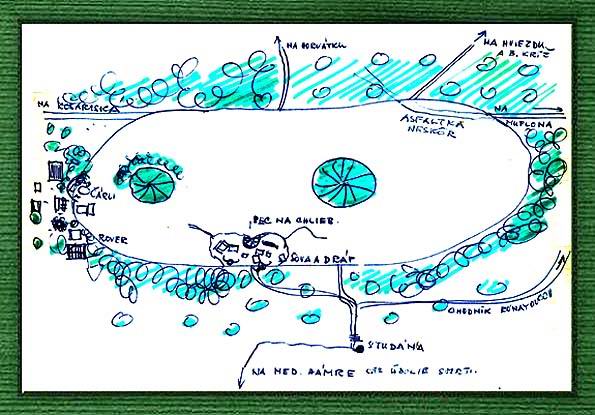 NA HORVÁTKU
NA HVIEZDU
A B. KRÍŽ
NA
KOŠARISKÁ
ASFALTKA
NESKÔR
NA
MUFLONA
ČÁRLI
PEC NA CHLIEB.
ROVER
SOVA A DRÁP
CHODNÍK
STUDÁŇA
NA MED. MÁMRE CEZ ÚDOLIE SMRTI.